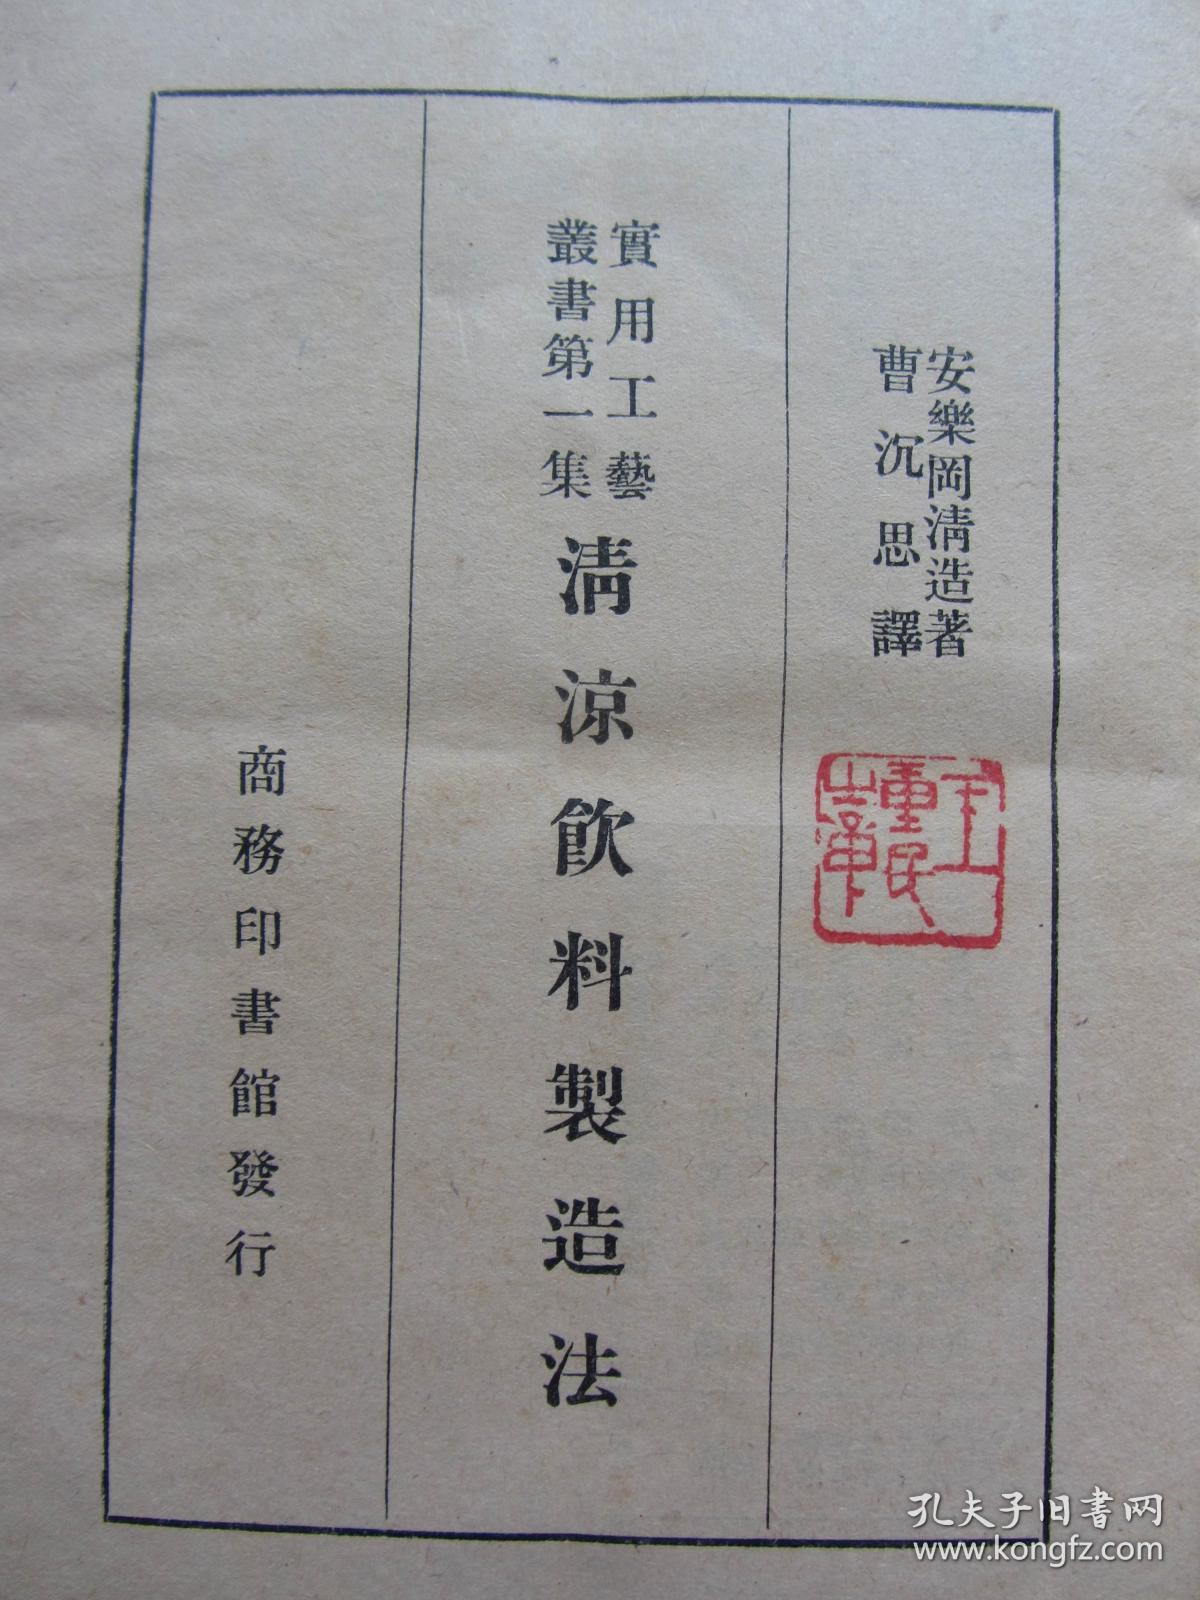 安樂岡淸造著
曹沉思譯
實用工藝
叢書第一集
淸涼飮料製造法
商務印書館發行
孔夫子旧书网
www.kongfz.com